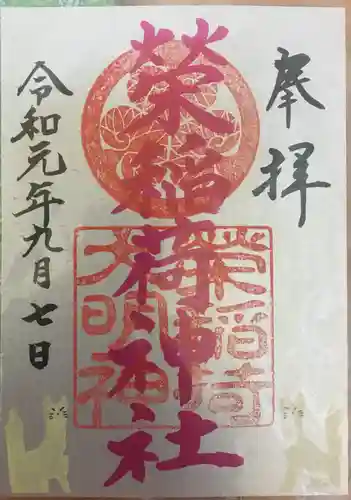 奉拝
榮稲荷神社
令和元年九月七日
榮稲荷
大明神